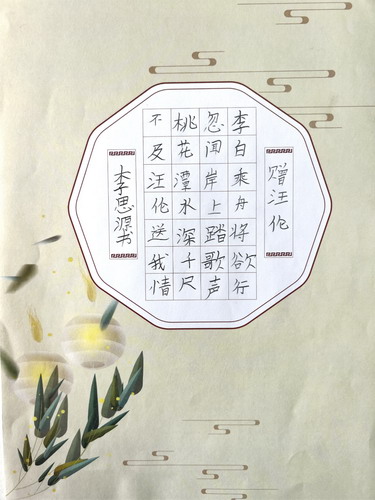 赠汪伦
李白乘舟将欲行
忽闻岸上踏歌声
桃花潭水深千尺
不及汪伦送我情
李思源书